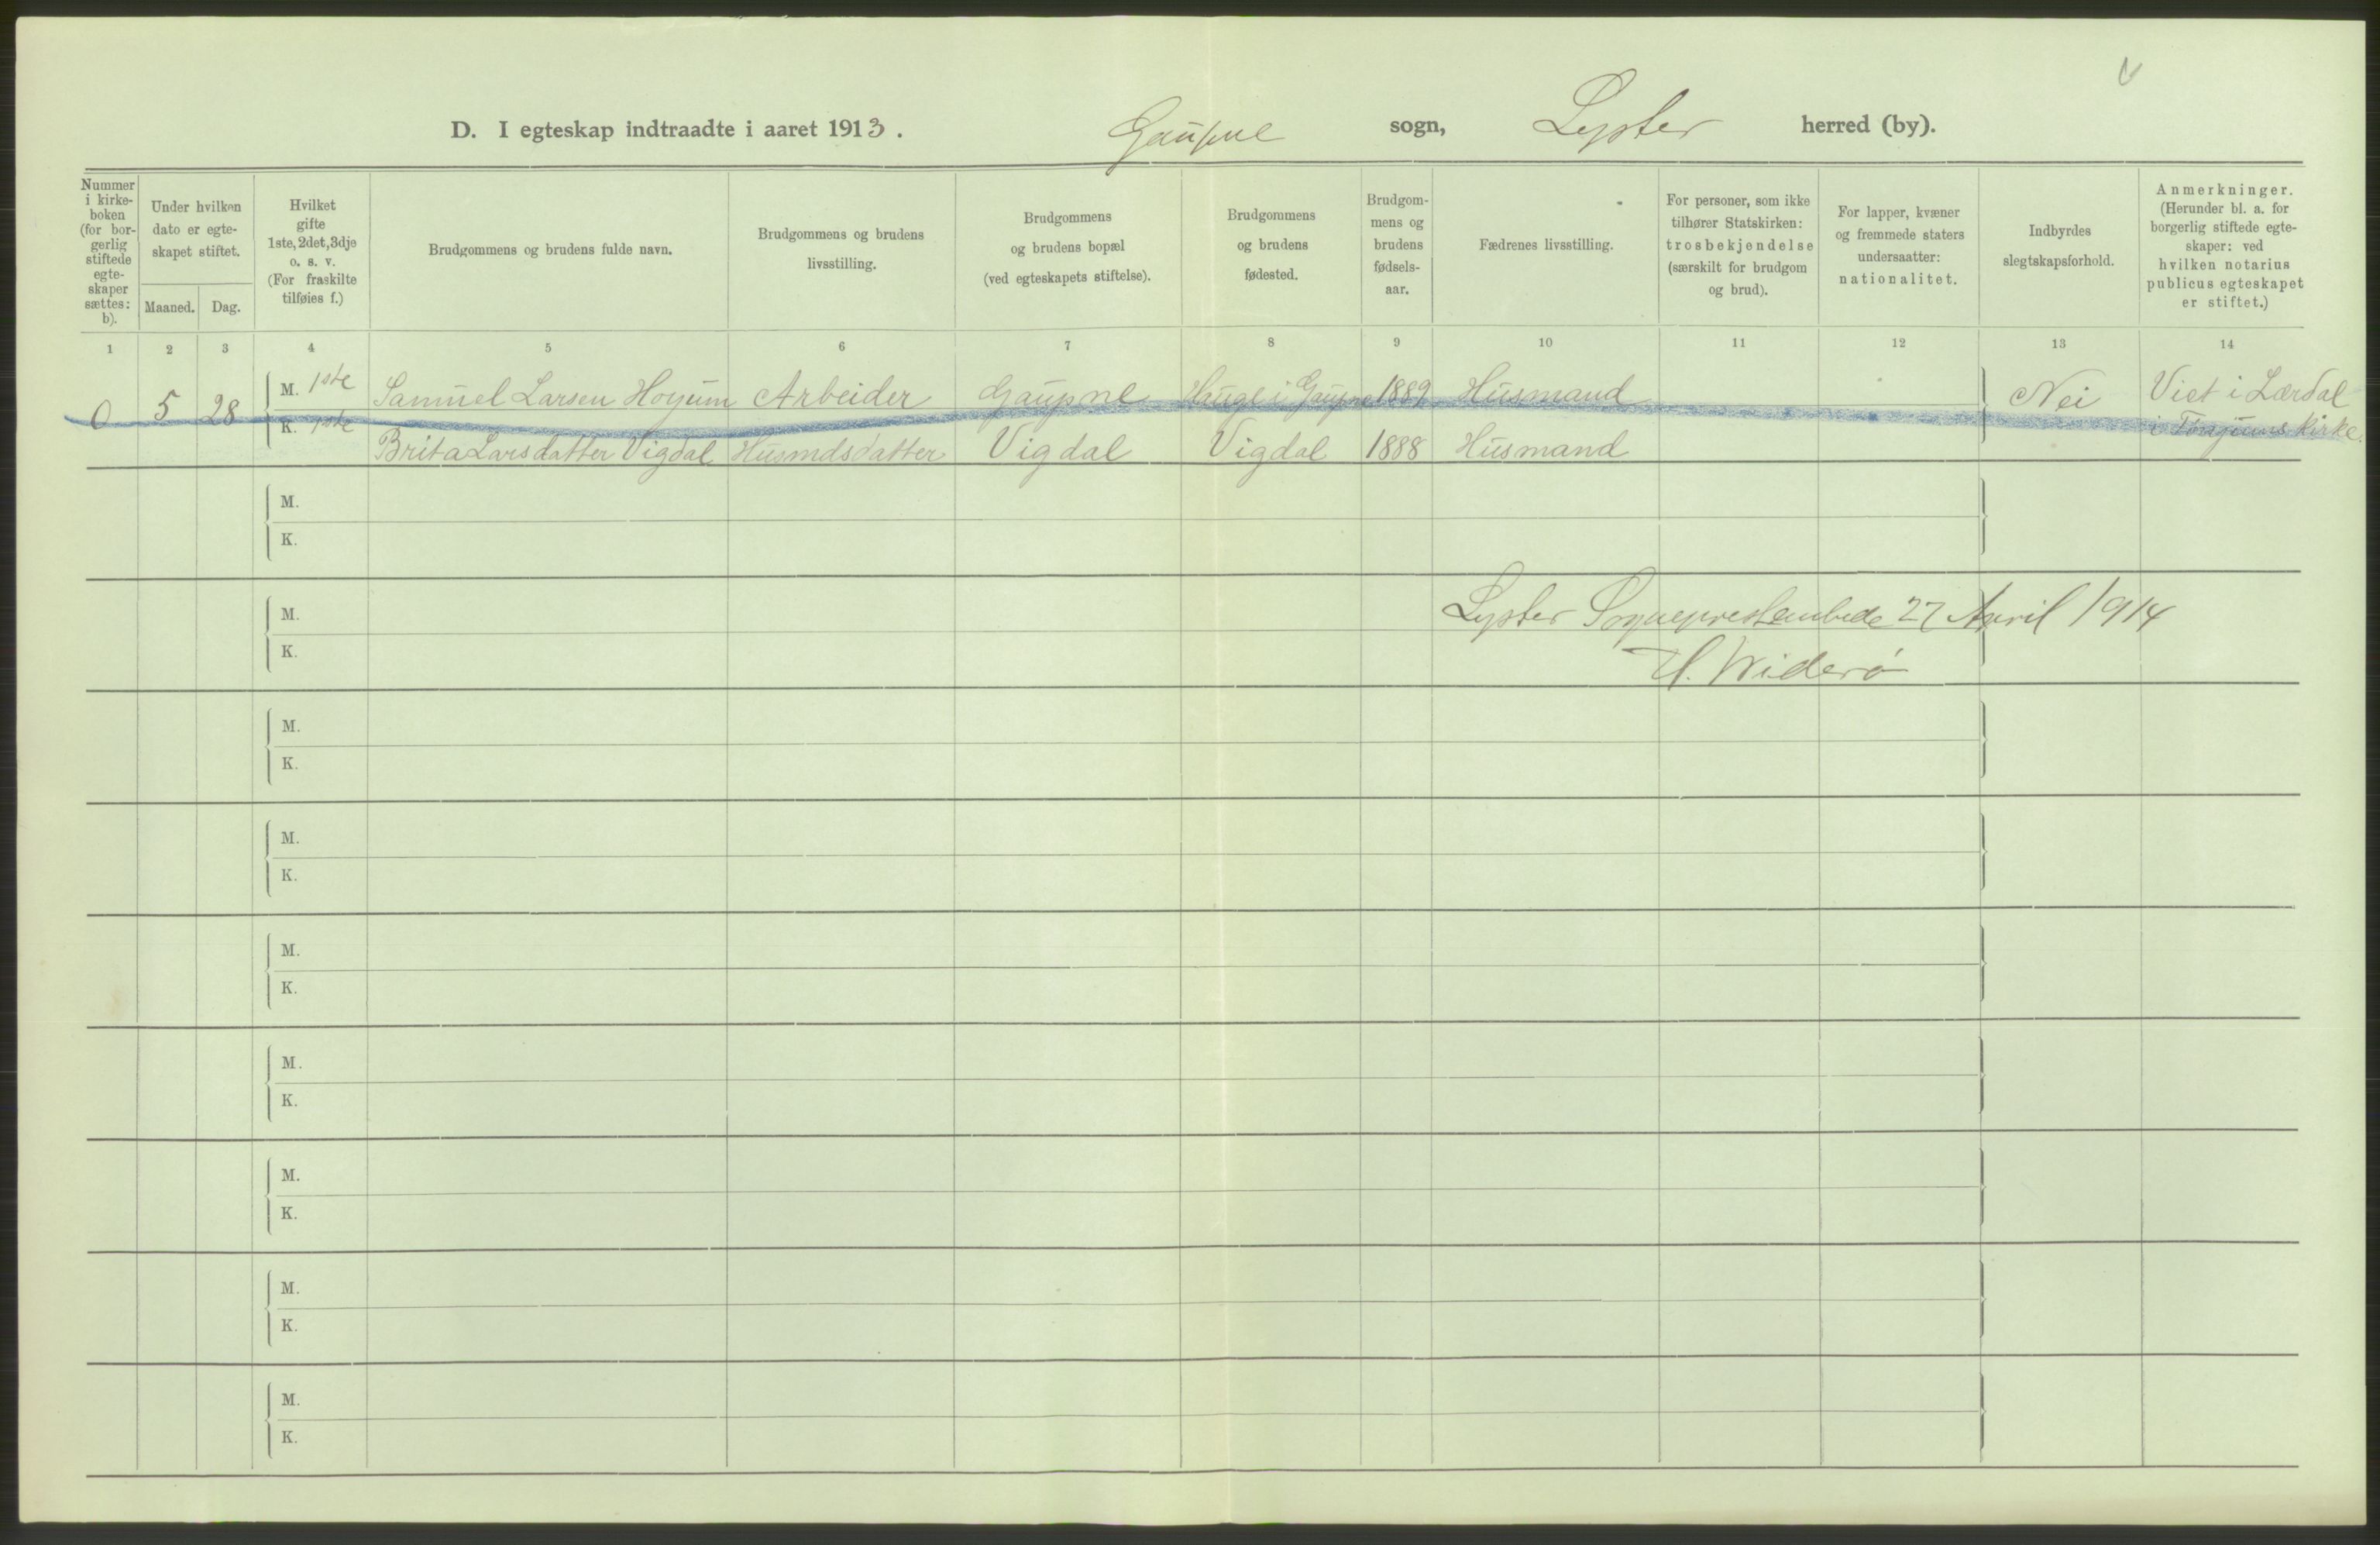 D. I egteskap indtraadte i aaret 1913. Gaupne sogn, Lyster herred (by).
Nummer i kirke-boken (for bor-gerlig stiftede egte-skaper sættes: b).
Under hvilken dato er egte-skapet stiftet.
Maaned. Dag.
Hvilket gifte 1ste, 2det, 3dje o. s. v. (For fraskilte tilføies f.)
Brudgommens og brudens fulde navn.
Brudgommens og brudens livsstilling.
Brudgommens og brudens bopæl (ved egteskapets stiftelse).
Brudgommens og brudens fødested.
Brudgom-mens og brudens fødsels-aar.
Fædrenes livsstilling.
For personer, som ikke tilhører Statskirken: trosbekjendelse (særskilt for brudgom og brud).
For lapper, kvæner og fremmede staters undersaatter: nationalitet.
Indbyrdes slegtskapsforhold.
Anmerkninger. (Herunder bl. a. for borgerlig stiftede egte-skaper: ved hvilken notarius publicus egteskapet er stiftet.)
1 2 3 4 5 6 7 8 9 10 11 12 13 14
0 5 28 M. 1ste Samuel Larsen Hoyum Arbeider Gaupne Hauge i Gaupne 1889 Husmand Nei Viet i Lærdal
K. 1ste Brita Larsdatter Vigdal Husmdsdatter Vigdal Vigdal 1888 Husmand i Tonjums Kirke.
M.
K.
M. Lyster Sogneprestembede 27 April 1914
K. H. Widerö
M.
K.
M.
K.
M.
K.
M.
K.
M.
K.
M.
K.
M.
K.